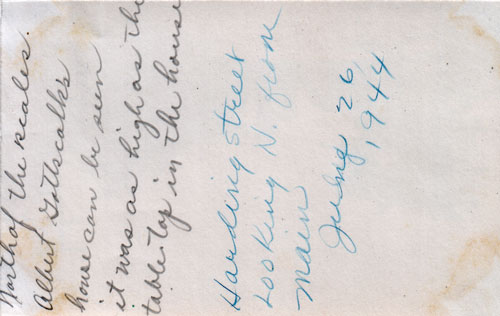 North of the scales.
Albert Gottscalks
house can be seen
it was as high as the
table top in the house
Harding Street
Looking N. from
Main
June 26,
1944